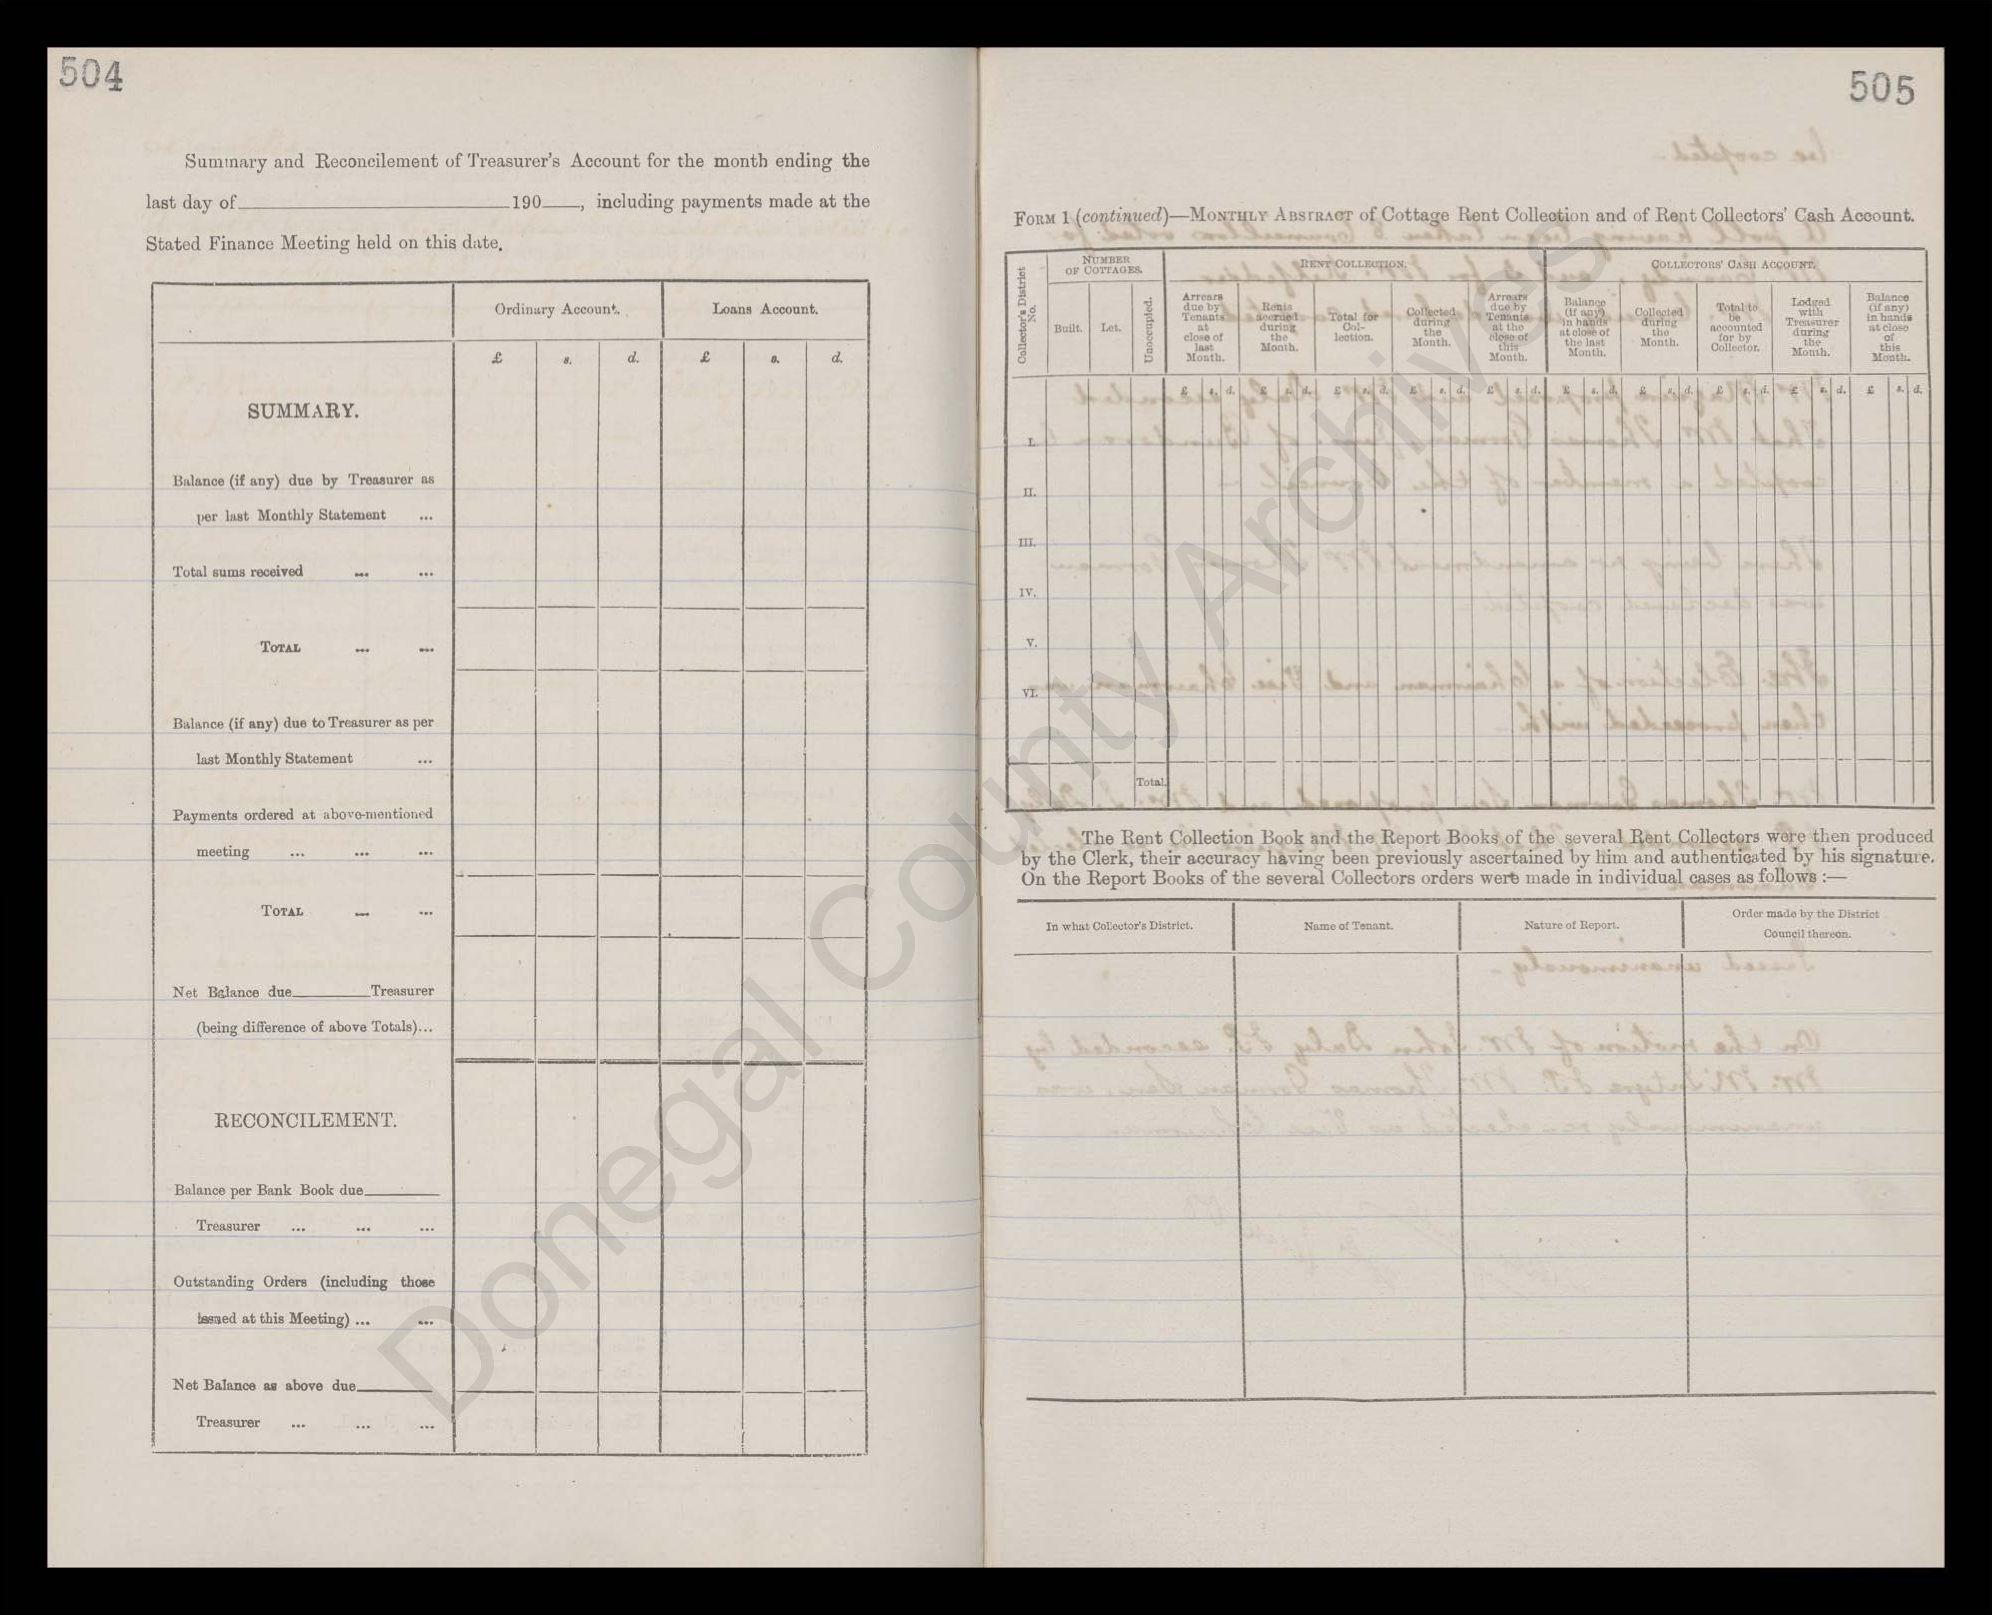 504
Summary and Reconcilement of Treasurer's Account for the month ending the
last day of 190 , including payments made at the
Stated Finance Meeting held on this date.
Ordinary Account. Loans Account.
£ s. d. £ s. d.
SUMMARY.
Balance (if any) due by Treasurer as
per last Monthly Statement ...
Total sums received ... ...
TOTAL ... ...
Balance (if any) due to Treasurer as per
last Monthly Statement ...
Payments ordered at above-mentioned
meeting ... ... ...
TOTAL ... ...
Net Balance due Treasurer
(being difference of above Totals)...
RECONCILEMENT.
Balance per Bank Book due
Treasurer ... ... ...
Outstanding Orders (including those
issued at this Meeting) ... ...
Net Balance as above due
Treasurer ... ... ...
505
FORM 1 (continued)—MONTHLY ABSTRACT of Cottage Rent Collection and of Rent Collectors' Cash Account.
Collector's District No.
NUMBER OF COTTAGES.
RENT COLLECTION.
COLLECTORS' CASH ACCOUNT.
Built.
Let.
Unoccupied.
Arrears due by Tenants at close of last Month.
Rents accrued during the Month.
Total for Col-lection.
Collected during the Month.
Arrears due by Tenants at the close of this Month.
Balance (if any) in hands at close of the last Month.
Collected during the Month.
Total to be accounted for by Collector.
Lodged with Treasurer during the Month.
Balance (if any) in hands at close of this Month.
£ s. d. £ s. d. £ s. d. £ s. d. £ s. d. £ s. d. £ s. d. £ s. d. £ s. d. £ s. d.
I.
II.
III.
IV.
V.
VI.
Total.
The Rent Collection Book and the Report Books of the several Rent Collectors were then produced
by the Clerk, their accuracy having been previously ascertained by him and authenticated by his signature.
On the Report Books of the several Collectors orders were made in individual cases as follows :—
In what Collector's District. Name of Tenant. Nature of Report. Order made by the District Council thereon.
Donegal County Archives